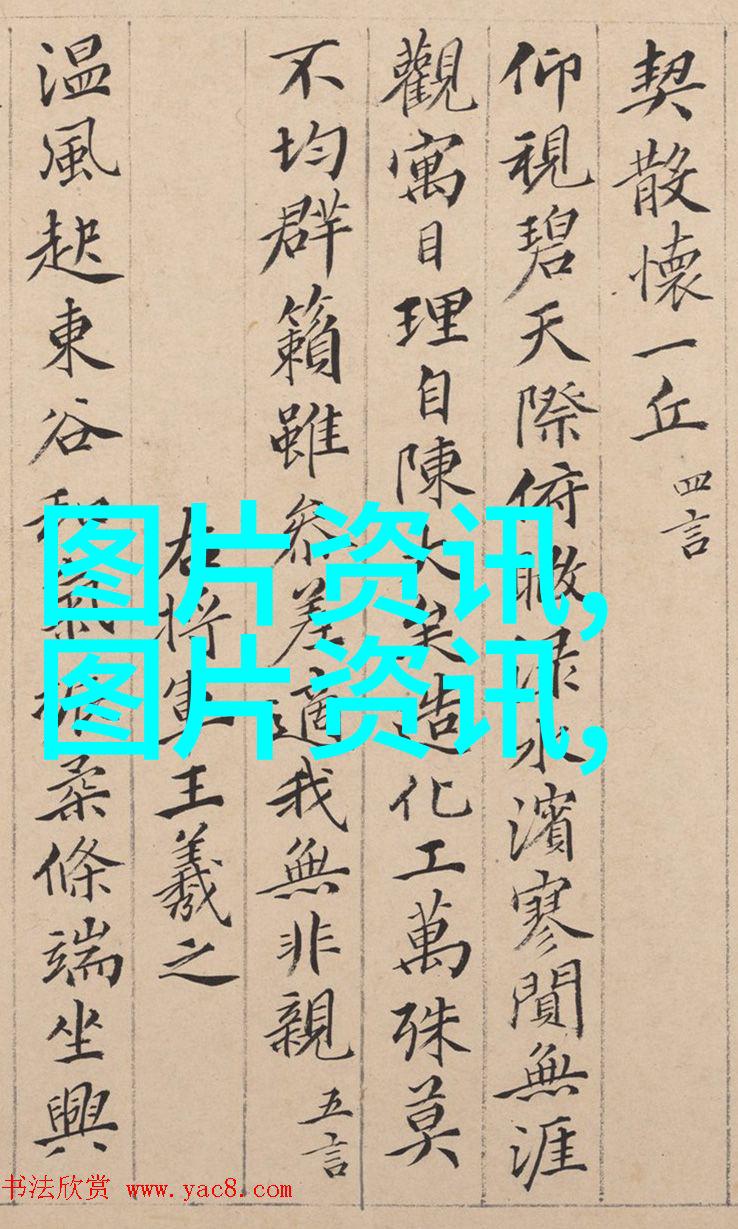 契散懷一丘 四言
仰視碧天際俯瞰渌水濱寥閴無涯
觀寓目理自陳大矣造化工萬殊莫
不均群籟雖參差適我無非親 五言
右將軍王羲之
温風起東谷和氣振柔條端坐興
图片资讯,
图片资讯,
书法欣赏 www.yac8.com